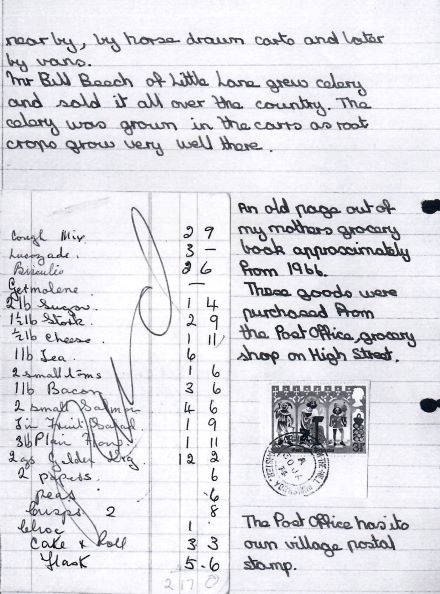 near by, by horse drawn carts and later
by vans.
Mr Bill Beech of Little Lane grew celery
and sold it all over the country. The
celery was grown in the carrs as root
crops grow very well there.
Cough Mix 2 9
Lucozade. 3 -
2 6
Germolene -
2lb Sugar 1 4
1½lb Stork 2 9
½lb Cheese 1 11
1lb Tea 6
2 small tins 1 6
1lb Bacon 3 6
2 small Salmon 4 6
Tin Fruit Salad 1 9
3lb Plain Flour 1 11
2 Golden 12 2
2 6
peas 6
Crisps 2 8
1
Cake & Roll 3 3
Flask 5 - 6
2 17 0
Paid
An old page out of
my mothers grocery
book approximately
from 1966.
These goods were
purchased from
the Post Office, grocery
shop on High Street.
3p
The Post Office has its
own village postal
stamp.